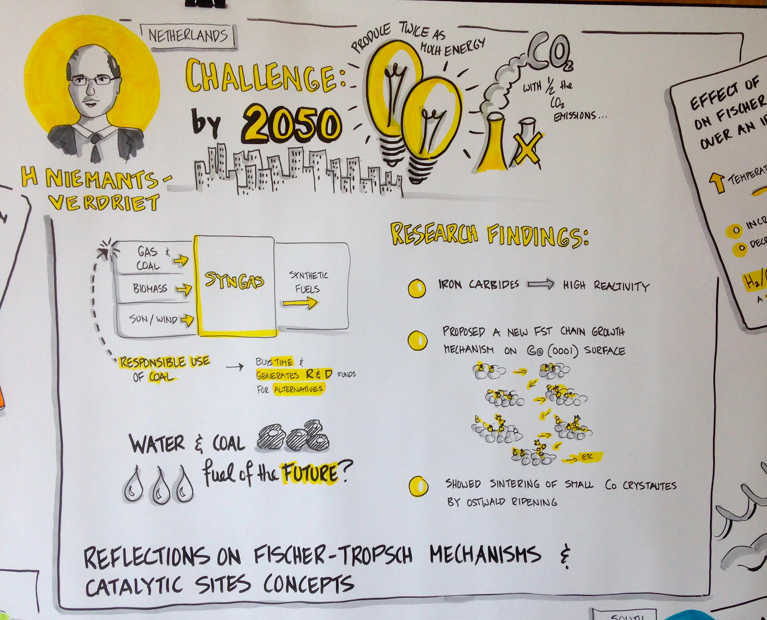 NETHERLANDS
H NIEMANTS-
VERDRIET
CHALLENGE:
by 2050
PRODUCE TWICE AS
MUCH ENERGY
CO2
WITH 1/2 the
CO2
EMISSIONS...
GAS &
COAL
BIOMASS
SUN/WIND
SYNGAS
SYNTHETIC
FUELS
RESPONSIBLE USE
OF COAL
→ BUYS TIME &
GENERATES R&D FUNDS
FOR ALTERNATIVES
WATER & COAL
fuel of the FUTURE?
RESEARCH FINDINGS:
IRON CARBIDES ⇒ HIGH REACTIVITY
PROPOSED A NEW FST CHAIN GROWTH
MECHANISM ON CO (0001) SURFACE
ETC
SHOWED SINTERING OF SMALL Co CRYSTALITES
BY OSTWALD RIPENING
REFLECTIONS ON FISCHER-TROPSCH MECHANISMS &
CATALYTIC SITES CONCEPTS
EFFECT OF
ON FISCHER
OVER AN
TEMPERAT
INCR
DECR
H2/
SOUTH